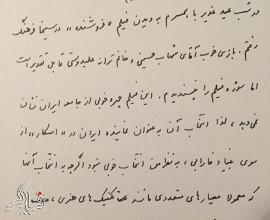 در شب عید غدیر با همسرم به دیدن فیلم «فروشنده» در سینما فرهنگ
رفتم. بازی خوب آقای شهاب حسینی و خانم ترانه علیدوستی قابل تقدیر است
اما سوژه فیلم را نپسندیدم. این فیلم چهره خوبی از جامعه ایران نشان
نمی‌دهد، لذا انتخاب آن به عنوان نماینده ایران در «اسکار» از
سوی بنیاد فارابی، به نظر من انتخاب خوبی نبود اگرچه به انتخاب آنها
که معمولا معیارهای متعددی مانند تکنیک‌های هنری،